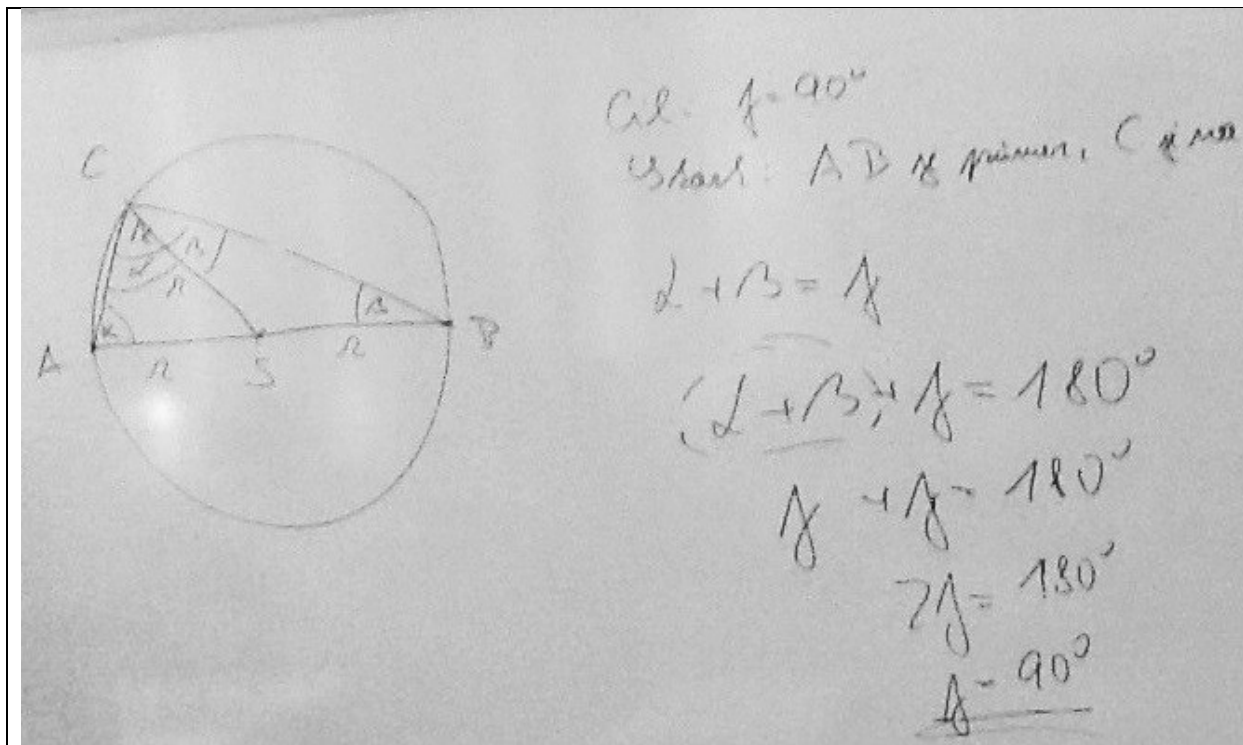 C
α β
α
r
α β
A r S r B
Cíl: γ = 90°
AB je průměr, C je
α + β = γ
(α + β) + γ = 180°
γ + γ = 180°
2γ = 180°
γ = 90°